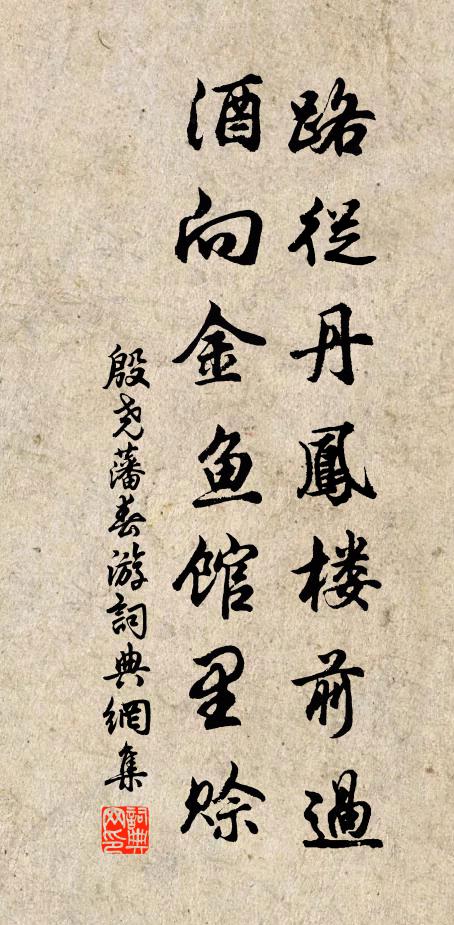 路從丹鳳楼前過
酒向金魚馆里赊
殷尧藩春游詞典網集
詞典网印